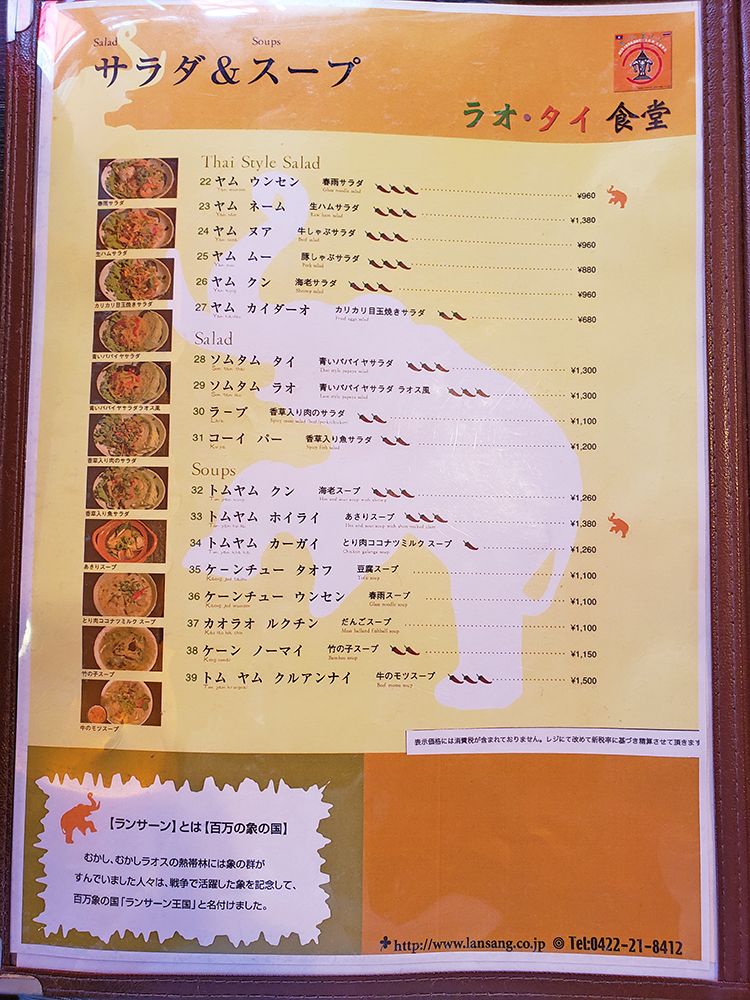 Salad Soups
サラダ&スープ
ラオ・タイ 食堂
Thai Style Salad
22 ヤム ウンセン 春雨サラダ ¥960
Glass noodle salad
23 ヤム ネーム 生ハムサラダ ¥1,380
Raw ham salad
24 ヤム ヌア 牛しゃぶサラダ ¥960
Beef salad
25 ヤム ムー 豚しゃぶサラダ ¥880
Pork salad
26 ヤム クン 海老サラダ ¥960
Shrimp salad
27 ヤム カイダーオ カリカリ目玉焼きサラダ ¥680
Fried eggs salad
Salad
28 ソムタム タイ 青いパパイヤサラダ ¥1,300
Thai style papaya salad
29 ソムタム ラオ 青いパパイヤサラダ ラオス風 ¥1,300
Laos style papaya salad
30 ラープ 香草入り肉のサラダ ¥1,100
31 コーイ パー 香草入り魚サラダ ¥1,200
Spicy fish salad
Soups
32 トムヤム クン 海老スープ ¥1,260
Hot and sour soup with shrimp
33 トムヤム ホイライ あさりスープ ¥1,380
34 トムヤム カーガイ とり肉ココナツミルク スープ ¥1,260
Chicken galanga soup
35 ケーンチュー タオフ 豆腐スープ ¥1,100
Tofu soup
36 ケーンチュー ウンセン 春雨スープ ¥1,100
Glass noodle soup
37 カオラオ ルクチン だんごスープ ¥1,100
38 ケーン ノーマイ 竹の子スープ ¥1,150
Bamboo soup
39 トム ヤム クルアンナイ 牛のモツスープ ¥1,500
春雨サラダ
生ハムサラダ
カリカリ目玉焼きサラダ
青いパパイヤサラダ
青いパパイヤサラダラオス風
香草入り肉のサラダ
香草入り魚サラダ
あさりスープ
とり肉ココナツミルク スープ
竹の子スープ
牛のモツスープ
表示価格には消費税が含まれておりません。レジにて改めて新税率に基づき精算させて頂きます
【ランサーン】とは【百万の象の国】
むかし、むかしラオスの熱帯林には象の群が
すんでいました人々は、戦争で活躍した象を記念して、
百万象の国「ランサーン王国」と名付けました。
http://www.lansang.co.jp ◎ Tel:0422-21-8412